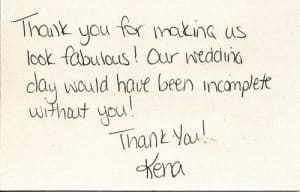 Thank you for making us
look fabulous! Our wedding
day would have been incomplete
without you!
Thank You!
Kena